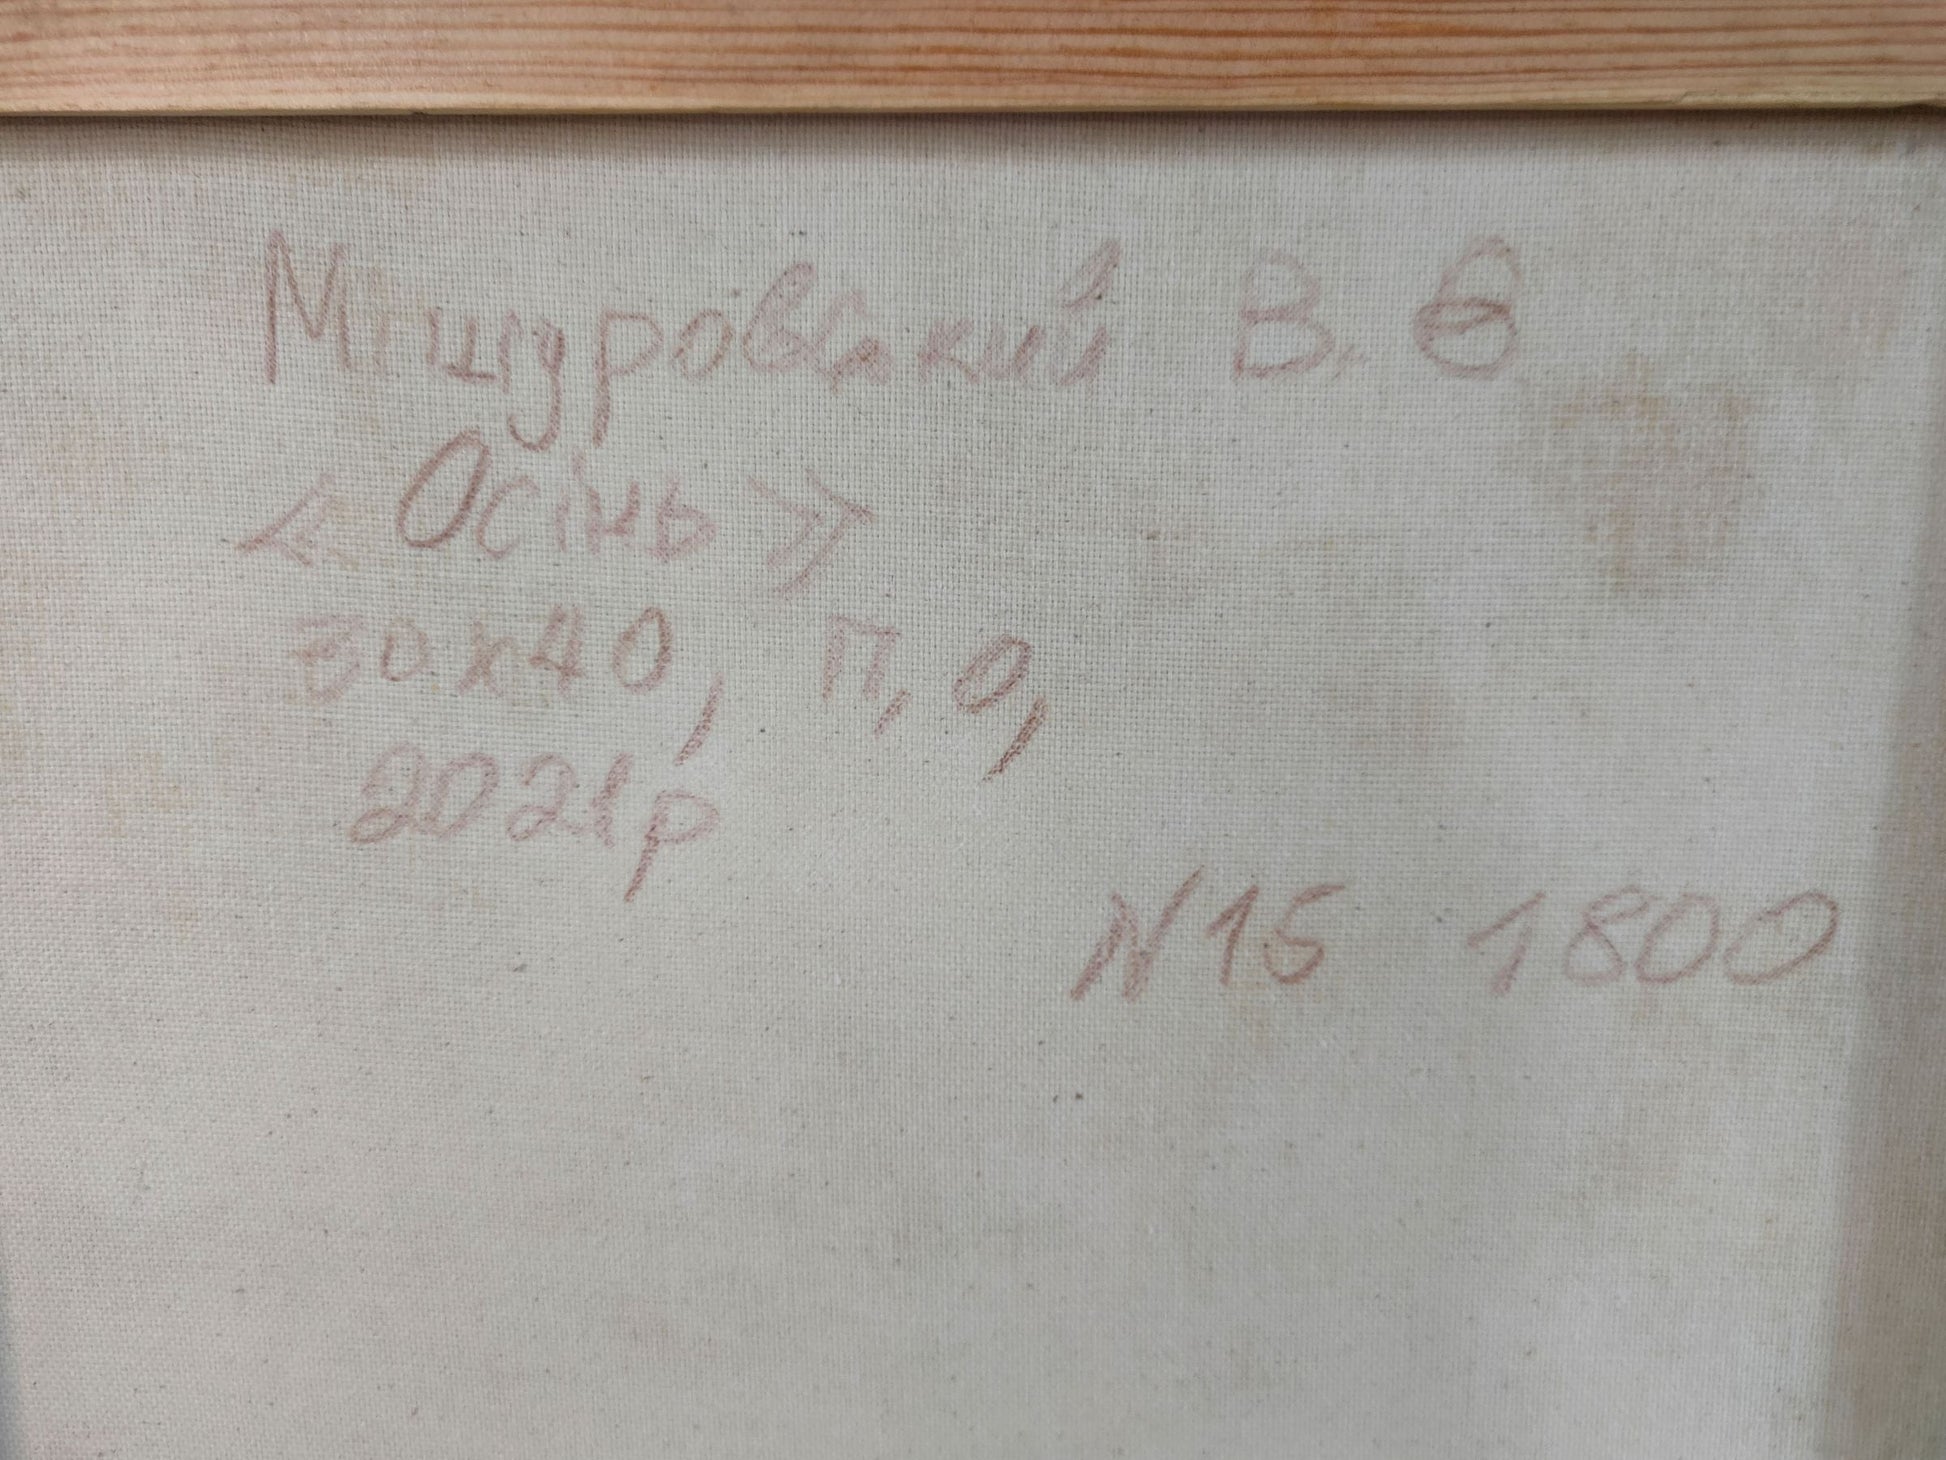 Міщуровський В. В
«Осінь»
30х40, П, О,
2021р
N15 1800